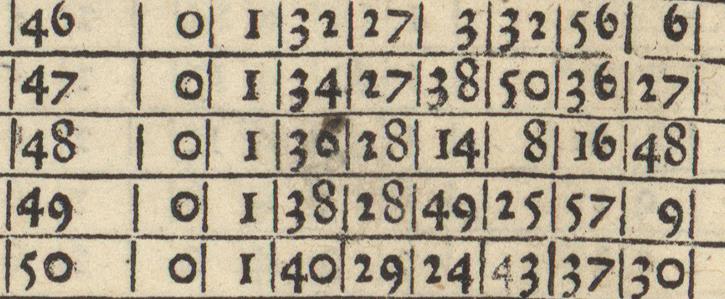 46 | 0 | 1 | 32 | 27 | 3 | 32 | 56 | 6
47 | 0 | 1 | 34 | 27 | 38 | 50 | 36 | 27
48 | 0 | 1 | 36 | 28 | 14 | 8 | 16 | 48
49 | 0 | 1 | 38 | 28 | 49 | 25 | 57 | 9
50 | 0 | 1 | 40 | 29 | 24 | 43 | 37 | 30